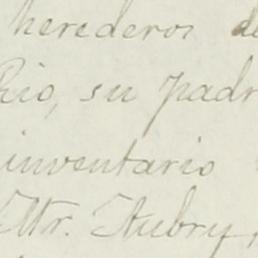 herederos de
Rio, su padr
inventario
Mr. Aubry,